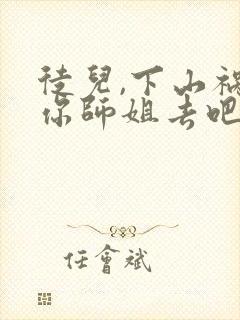 徒兒,下山禍
你師姐去吧
任會斌